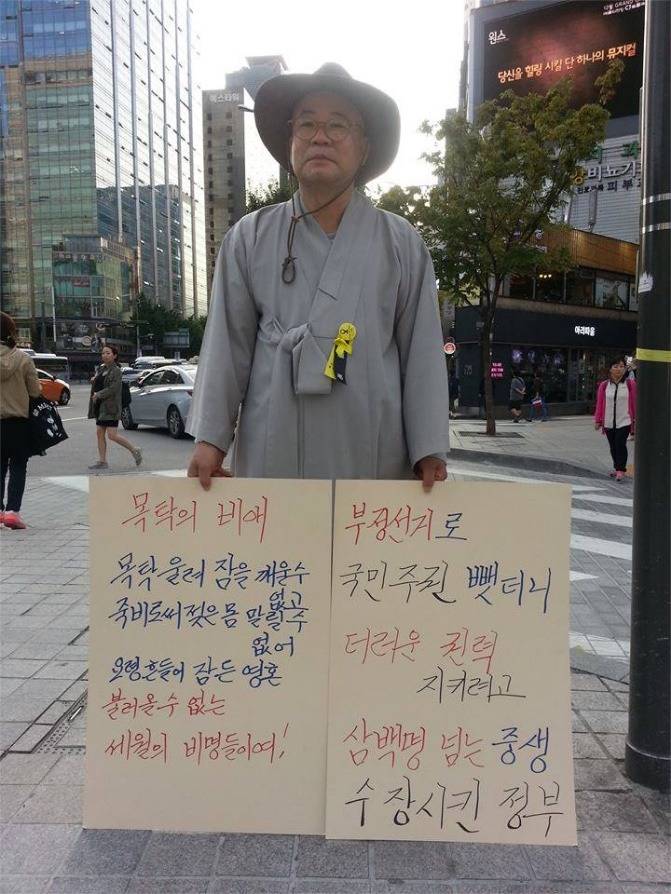 목탁의 비애
목탁 울려 잠을 깨울수
없고
죽비로써 젖은 몸 말릴 수
없어
요령흔들어 잠든 영혼
불러올수 없는
세월의 비명들이여!
부정선거로
국민주권 뺏더니
더러운 권력
지키려고
삼백명 넘는 중생
수장시킨 정부
원스
당신을 힐링 시킬 단 하나의 뮤지컬
비뇨기
피부
아리따움